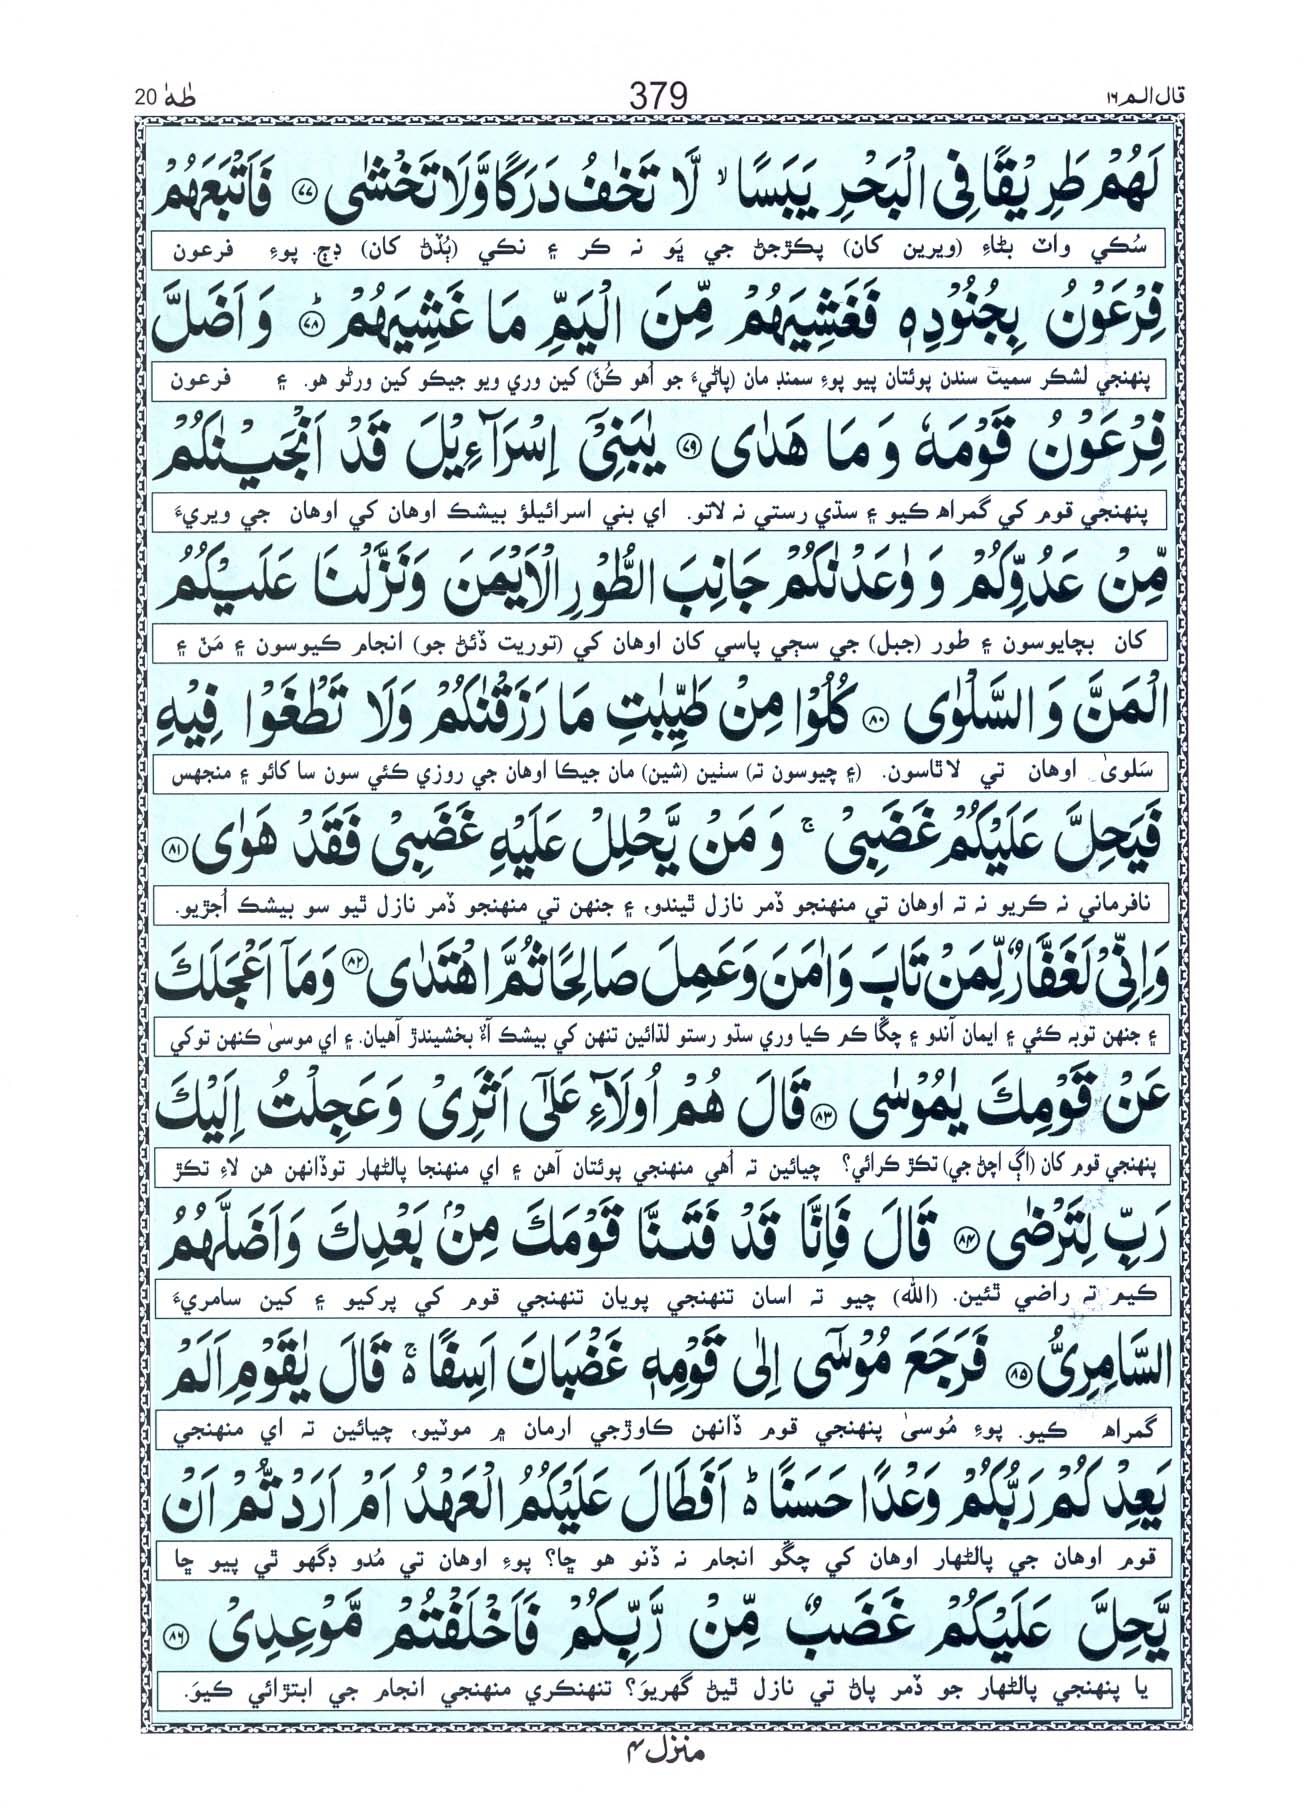 قال الم ١٦
379
طٰهٰ 20
لَهُمْ طَرِيْقًا فِى الْبَحْرِ يَبَسًا ۙ لَّا تَخٰفُ دَرَكًا وَّلَا تَخْشٰى ﴿٧٧﴾ فَاَتْبَعَهُمْ
سُڪي واٽ بڻاءِ (ويرين کان) پڪڙجڻ جي ڀَو نہ ڪر ۽ نڪي (ٻُڏڻ کان) ڊڄ. پوءِ فرعون
فِرْعَوْنُ بِجُنُوْدِهٖ فَغَشِيَهُمْ مِّنَ الْيَمِّ مَا غَشِيَهُمْ ؕ ﴿٧٨﴾ وَ اَضَلَّ
پنهنجي لشڪر سميت سندن پوئتان پيو پوءِ سمنڊ مان (پاڻيءَ جو اُهو ڪُنَّ) کين وري ويو جيڪو کين ورڻو هو. ۽ فرعون
فِرْعَوْنُ قَوْمَهٗ وَ مَا هَدٰى ﴿٧٩﴾ يٰبَنِىْٓ اِسْرَآءِيْلَ قَدْ اَنْجَيْنٰكُمْ
پنهنجي قوم کي گمراھ ڪيو ۽ سڌي رستي نہ لاتو. اي بني اسرائيلؤ بيشڪ اوهان کي اوهان جي ويريءَ
مِّنْ عَدُوِّكُمْ وَ وٰعَدْنٰكُمْ جَانِبَ الطُّوْرِ الْاَيْمَنَ وَنَزَّلْنَا عَلَيْكُمُ
کان بچايوسون ۽ طور (جبل) جي سڄي پاسي کان اوهان کي (توريت ڏئڻ جو) انجام ڪيوسون ۽ مَنّ ۽
الْمَنَّ وَ السَّلْوٰى ﴿٨٠﴾ كُلُوْا مِنْ طَيِّبٰتِ مَا رَزَقْنٰكُمْ وَلَا تَطْغَوْا فِيْهِ
سَلوىٰ اوهان تي لاٿاسون. (۽ چيوسون تہ) سٺين (شين) مان جيڪا اوهان جي روزي ڪئي سون سا کائو ۽ منجھس
فَيَحِلَّ عَلَيْكُمْ غَضَبِىْ ۚ وَ مَنْ يَّحْلِلْ عَلَيْهِ غَضَبِىْ فَقَدْ هَوٰى ﴿٨١﴾
نافرماني نہ ڪريو نہ تہ اوهان تي منهنجو ڏمر نازل ٿيندو، ۽ جنهن تي منهنجو ڏمر نازل ٿيو سو بيشڪ اُجڙيو.
وَاِنِّىْ لَغَفَّارٌ لِّمَنْ تَابَ وَاٰمَنَ وَعَمِلَ صَالِحًا ثُمَّ اهْتَدٰى ﴿٨٢﴾ وَمَآ اَعْجَلَكَ
۽ جنهن توبہ ڪئي ۽ ايمان آندو ۽ چڱا ڪم ڪيا وري سڌو رستو لڌائين تنهن کي بيشڪ آءٌ بخشيندڙ آهيان. ۽ اي موسىٰ ڪنهن توکي
عَنْ قَوْمِكَ يٰمُوْسٰى ﴿٨٣﴾ قَالَ هُمْ اُولَآءِ عَلٰٓى اَثَرِىْ وَ عَجِلْتُ اِلَيْكَ
پنهنجي قوم کان (اڳ اچڻ جي) تڪڙ ڪرائي؟ چيائين تہ اُهي منهنجي پوئتان آهن ۽ اي منهنجا پالڻهار توڏانهن هن لاءِ تڪڙ
رَبِّ لِتَرْضٰى ﴿٨٤﴾ قَالَ فَاِنَّا قَدْ فَتَنَّا قَوْمَكَ مِنْۢ بَعْدِكَ وَ اَضَلَّهُمُ
ڪيم تہ راضي ٿئين. (الله) چيو تہ اسان تنهنجي پويان تنهنجي قوم کي پرکيو ۽ کين سامريءَ
السَّامِرِىُّ ﴿٨٥﴾ فَرَجَعَ مُوْسٰٓى اِلٰى قَوْمِهٖ غَضْبَانَ اَسِفًا ۬ۚ قَالَ يٰقَوْمِ اَلَمْ
گمراھ ڪيو. پوءِ مُوسىٰ پنهنجي قوم ڏانهن ڪاوڙجي ارمان ۾ موٽيو، چيائين تہ اي منهنجي
يَعِدْكُمْ رَبُّكُمْ وَعْدًا حَسَنًا ؕ اَفَطَالَ عَلَيْكُمُ الْعَهْدُ اَمْ اَرَدْتُّمْ اَنْ
قوم اوهان جي پالڻهار اوهان کي چڱو انجام نہ ڏنو هو ڇا؟ پوءِ اوهان تي مُدو ڊگهو ٿي پيو ڇا
يَّحِلَّ عَلَيْكُمْ غَضَبٌ مِّنْ رَّبِّكُمْ فَاَخْلَفْتُمْ مَّوْعِدِىْ ﴿٨٦﴾
يا پنهنجي پالڻهار جو ڏمر پاڻ تي نازل ٿيڻ گهريوَ؟ تنهنڪري منهنجي انجام جي ابتڙائي ڪيوَ.
منزل ۴